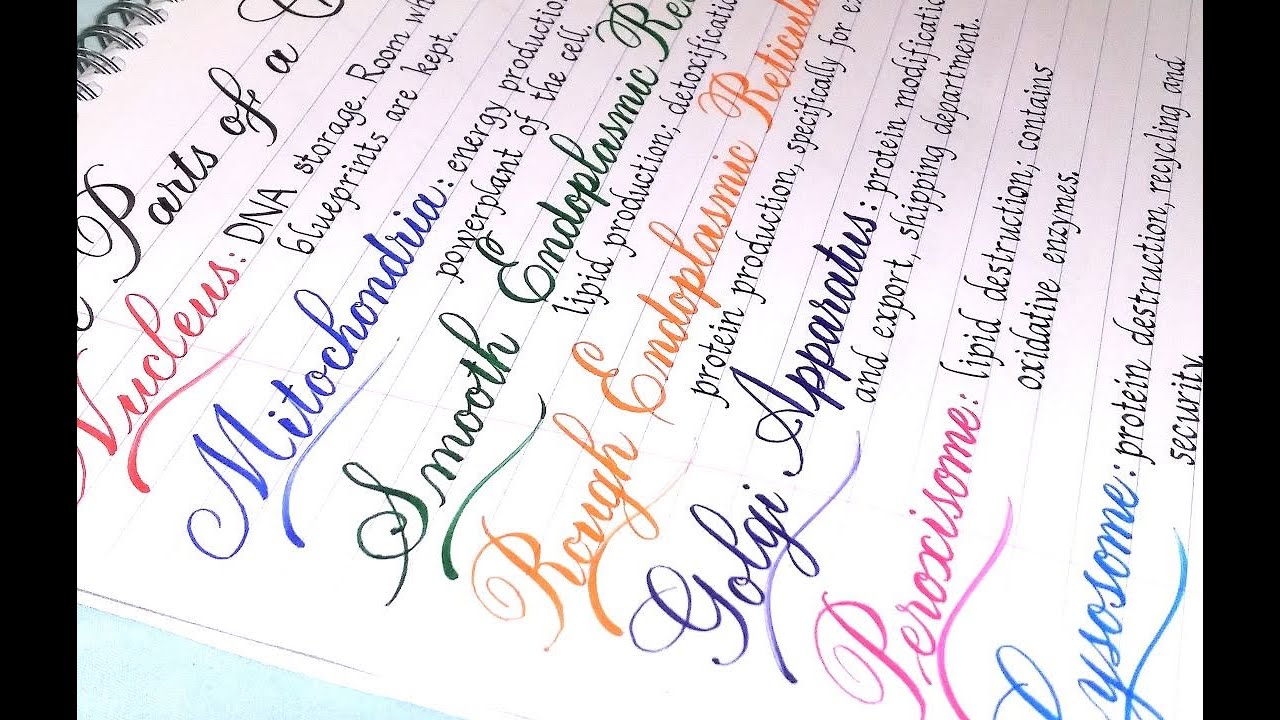 Parts of a
Nucleus: DNA storage. Room
blueprints are kept.
Mitochondria: energy production
powerplant of the cell.
Smooth Endoplasmic
lipid production; detoxification
Rough Endoplasmic
protein production, specifically for
Golgi Apparatus: protein modification
and export, shipping department.
Peroxisome: lipid destruction; contains
oxidative enzymes.
Lysosome: protein destruction, recycling and
security.